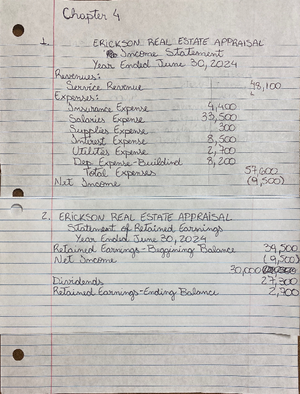 Chapter 4
1. ERICKSON REAL ESTATE APPRAISAL
Income Statement
Year Ended June 30, 2024
Revenues:
Service Revenue 48,100
Expenses:
Insurance Expense 4,400
Salaries Expense 33,500
Supplies Expense 300
Interest Expense 8,500
Utilities Expense 2,700
Dep. Expense-Building 8,200
Total Expenses 57,600
Net Income (9,500)
2. ERICKSON REAL ESTATE APPRAISAL
Statement of Retained Earnings
Year Ended June 30, 2024
Retained Earnings-Beggining Balance 39,500
Net Income (9,500)
30,000
Dividends 27,300
Retained Earnings-Ending Balance 2,700